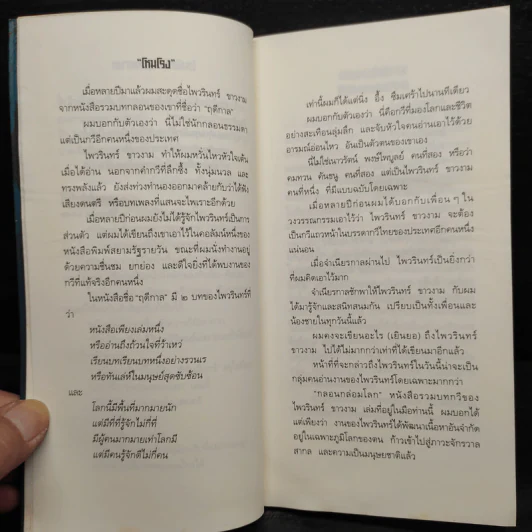 "โหมโรง"
เมื่อหลายปีมาแล้วผมสะดุดชื่อไพวรินทร์ ขาวงาม
จากหนังสือรวมบทกลอนของเขาที่ชื่อว่า "ฤดีกาล"
ผมบอกกับตัวเองว่า นี่ไม่ใช่นักกลอนธรรมดา
แต่เป็นกวีอีกคนหนึ่งของประเทศ
ไพวรินทร์ ขาวงาม ทำให้ผมหวั่นไหวหัวใจเต้น
เมื่อได้อ่าน นอกจากคำกวีที่ลึกซึ้ง ทั้งนุ่มนวล และ
ทรงพลังแล้ว ยังส่งท่วงทำนองออกมาคล้ายกับว่าได้ฟัง
เสียงดนตรี หรือบทเพลงที่แสนจะไพเราะอีกด้วย
เมื่อหลายปีก่อนผมยังไม่ได้รู้จักไพวรินทร์เป็นการ
ส่วนตัว แต่ผมได้เขียนถึงเขาเอาไว้ในคอลัมน์หนึ่งของ
หนังสือพิมพ์สยามรัฐรายวัน ขณะที่ผมนั่งทำงานอยู่
ด้วยความชื่นชม ยกย่อง และดีใจยิ่งที่ได้พบงานของ
กวีที่แท้จริงอีกคนหนึ่ง
ในหนังสือชื่อ "ฤดีกาล" มี ๒ บทของไพวรินทร์ที่
ว่า
หนังสือเพียงเล่มหนึ่ง
หรืออ่านถึงถ้วนใจที่ว้าเหว่
เรียนบทเรียนบทหนึ่งอย่างรวนเร
หรือทันเล่ห์ในมนุษย์สุดซับซ้อน
และ
โลกนี้มีพื้นที่มากมายนัก
แต่มีที่ที่รู้จักไม่กี่ที่
มีผู้คนมากมายเท่าโลกมี
แต่มีคนรู้จักดีไม่กี่คน
เท่านี้ผมก็ได้แต่นิ่ง อึ้ง ซึมเศร้าไปนานทีเดียว
ผมบอกกับตัวเองว่า นี่คือกวีที่มองโลกและชีวิต
อย่างสะเทือนลุ่มลึก และจับหัวใจคนอ่านเอาไว้ด้วย
อารมณ์อ่อนไหว อันเป็นตัวตนของเขาเอง
นี่ไม่ใช่เนาวรัตน์ พงษ์ไพบูลย์ คนที่สอง หรือว่า
คมทวน คันธนู คนที่สอง แต่เป็นไพวรินทร์ ขาวงาม
คนที่หนึ่ง ที่มีแบบฉบับโดยเฉพาะ
เมื่อหลายปีก่อนผมได้บอกกับเพื่อน ๆ ใน
วงวรรณกรรมเอาไว้ว่า ไพวรินทร์ ขาวงาม จะต้อง
เป็นกวีแถวหน้าในบรรดากวีไทยของประเทศอีกคนหนึ่ง
แน่นอน
เมื่อจำเนียรกาลผ่านไป ไพวรินทร์เป็นยิ่งกว่า
ที่ผมคิดเอาไว้มาก
จำเนียรกาลชักพาให้ไพวรินทร์ ขาวงาม กับผม
ได้มารู้จักและสนิทสนมกัน เปรียบเป็นทั้งเพื่อนและ
น้องชายในทุกวันนี้แล้ว
ผมคงจะเขียนอะไร (เยินยอ) ถึงไพวรินทร์
ขาวงาม ไปได้ไม่มากกว่าเท่าที่ได้เขียนมาอีกแล้ว
หน้าที่ที่จะกล่าวถึงไพวรินทร์ในวันนี้น่าจะเป็น
กลุ่มคนอ่านงานของไพวรินทร์โดยเฉพาะมากกว่า
"กลอนกล่อมโลก" หนังสือรวมบทกวีของ
ไพวรินทร์ ขาวงาม เล่มที่อยู่ในมือท่านนี้ ผมบอกได้
แต่เพียงว่า งานของไพวรินทร์ได้พัฒนาเนื้อหาอันจำกัด
อยู่ในเฉพาะภูมิโลกของตน ก้าวเข้าไปสู่ภาวะจักรวาล
สากล และความเป็นมนุษยชาติแล้ว